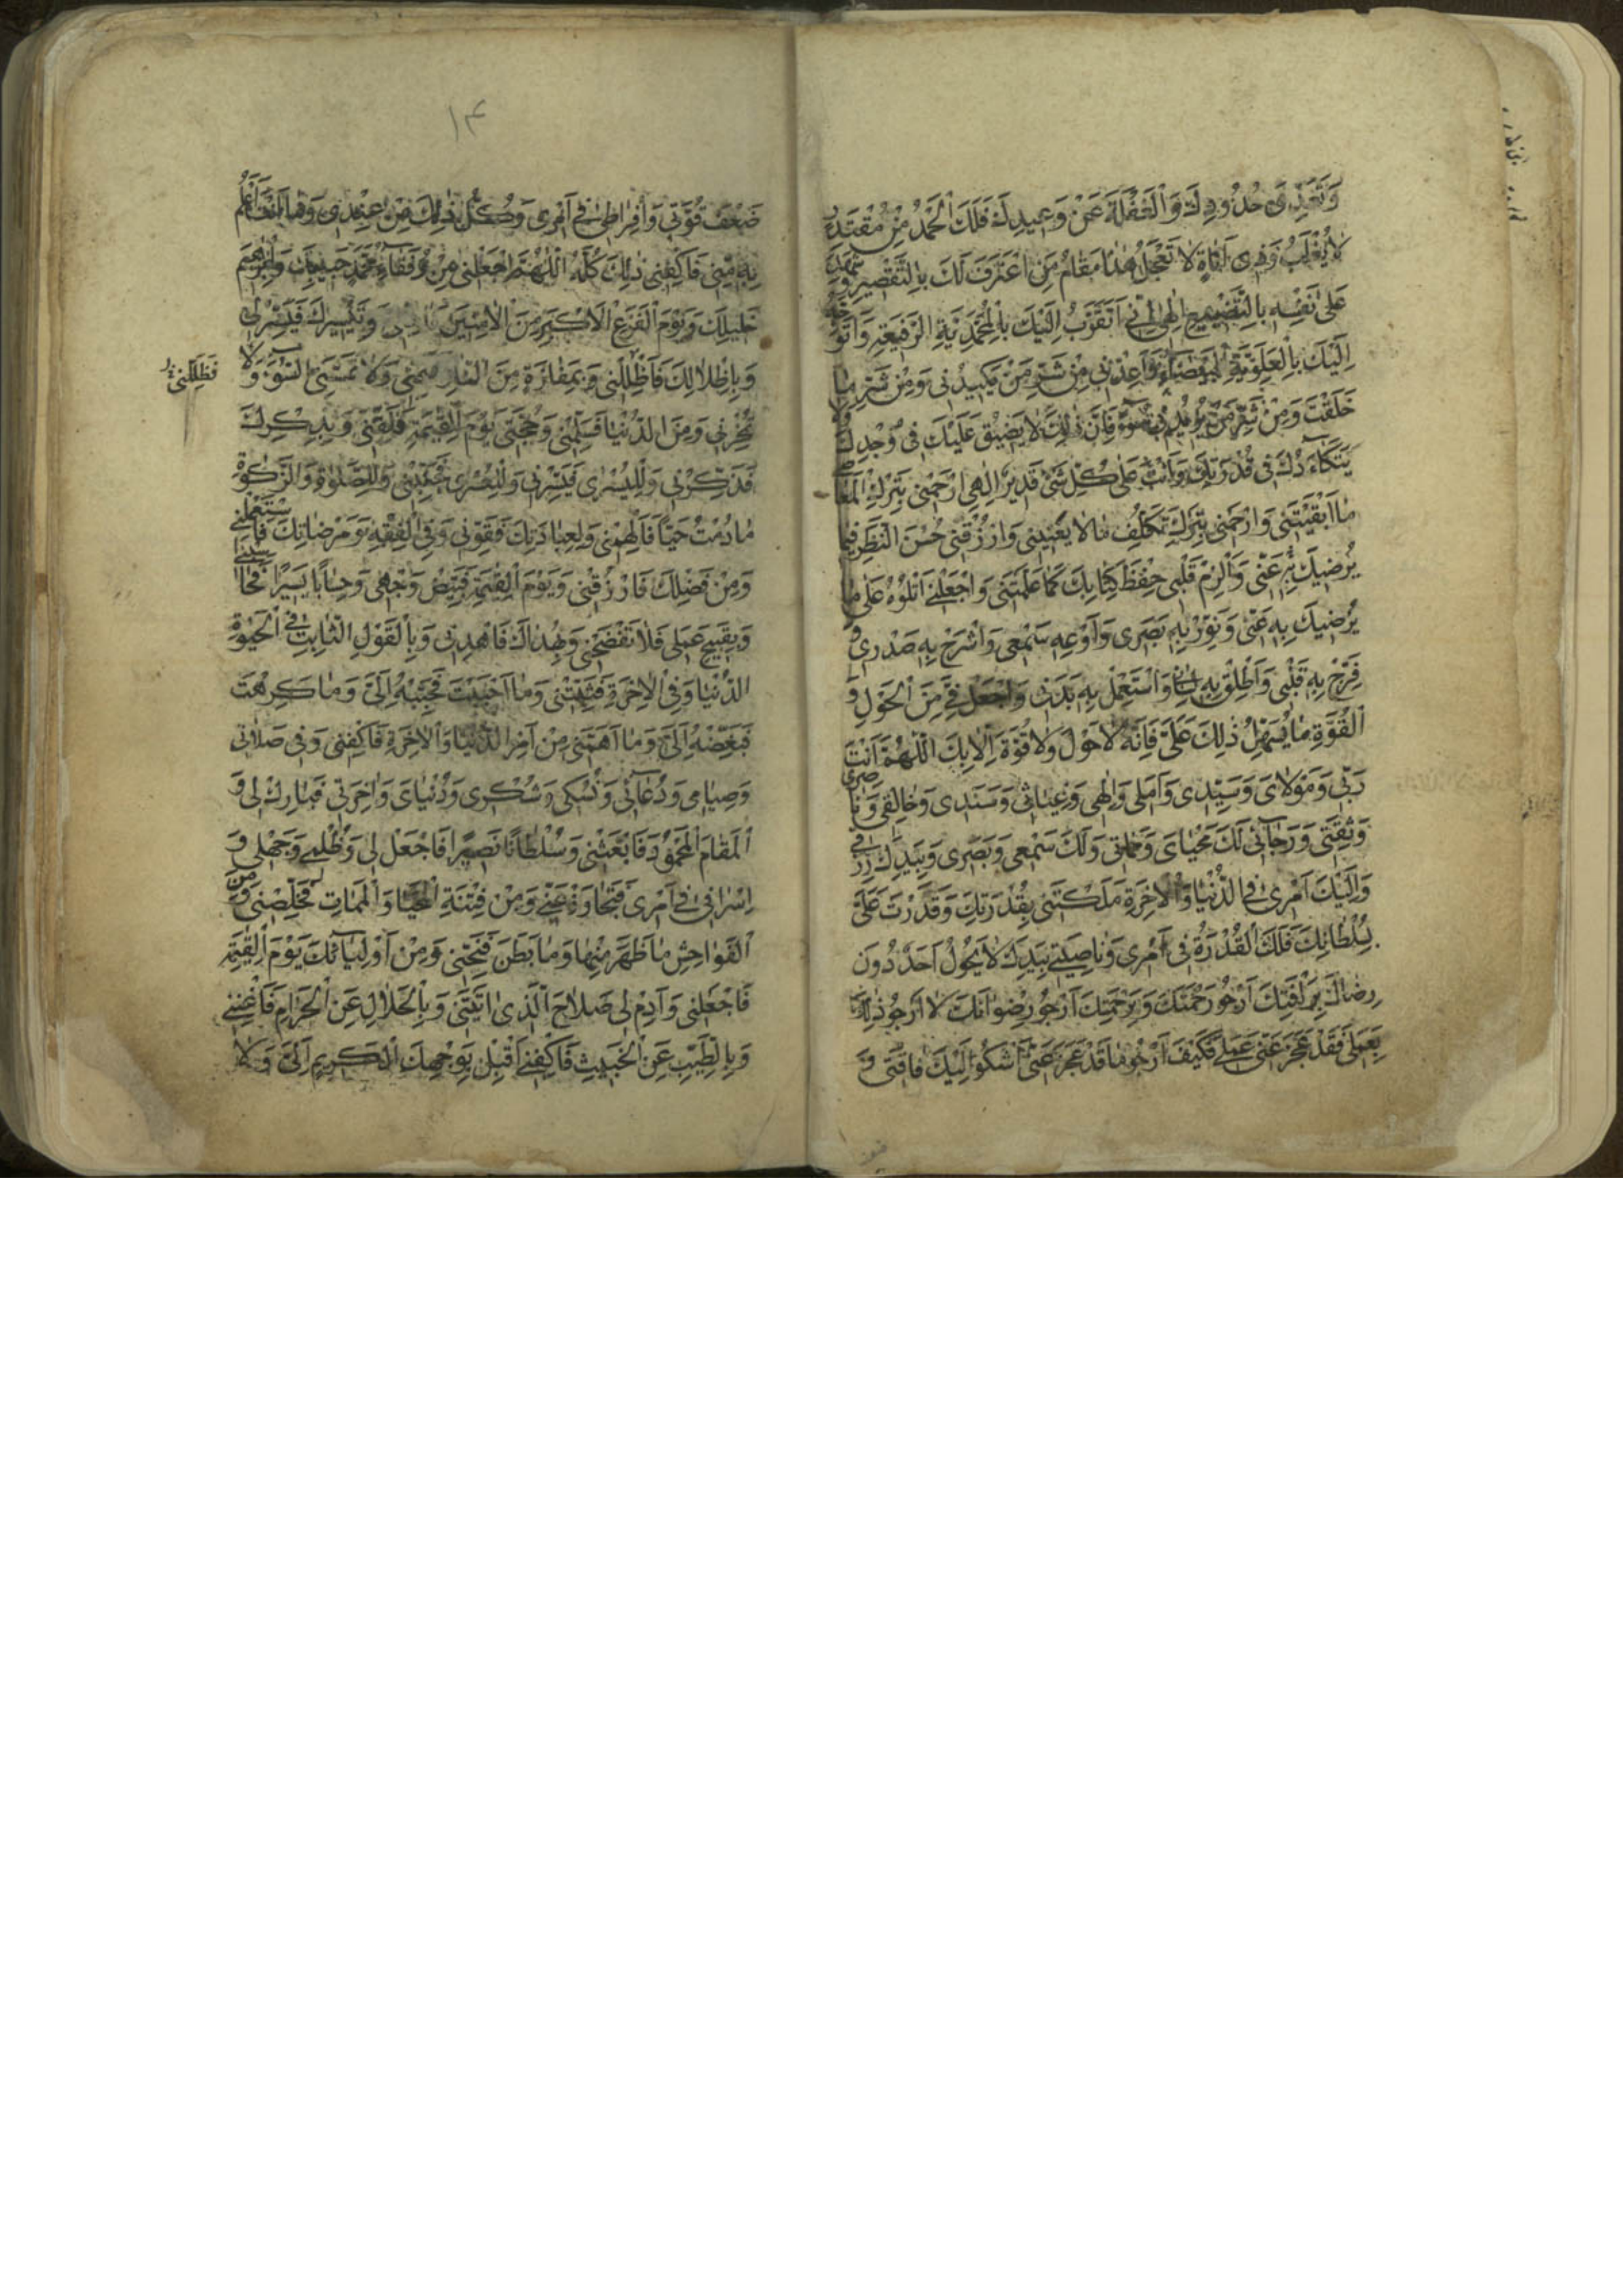 وَتَعَدّٖى حُدُودِكَ وَالْغَفْلَةَ عَنْ وَعِيدِكَ فَلَكَ الْحَمْدُ مِنْ مُقْتَدِرٍ
لَا يُغْلَبُ وَذٖى اَنَاةٍ لَا تَعْجَلُ هٰذَا مَقَامُ مَنِ اعْتَرَفَ لَكَ بِالتَّقْصٖيرِ وَشَهِدَ
عَلٰى نَفْسِهٖ بِالتَّضْيٖيعِ اِلٰهٖى اِنّٖى اَتَقَرَّبُ اِلَيْكَ بِالْمُحَمَّدِيَّةِ الرَّفٖيعَةِ وَاَتَوَجَّهُ
اِلَيْكَ بِالْعَلَوِيَّةِ الْبَيْضَاءِ وَاَعِذْنٖى مِنْ شَرِّ مَنْ يَكٖيدُنٖى وَمِنْ شَرِّ مَا
خَلَقْتَ وَمِنْ شَرِّ مَنْ يُرٖيدُ بٖى سُوءًا فَاِنَّ ذٰلِكَ لَا يَضٖيقُ عَلَيْكَ فٖى وُجْدِكَ وَلَا
يَتَكَاءَدُكَ فٖى قُدْرَتِكَ وَاَنْتَ عَلٰى كُلِّ شَىْءٍ قَدٖيرٌ اِلٰهٖى ارْحَمْنٖى بِتَرْكِ الْمَعَاصٖى
مَا اَبْقَيْتَنٖى وَارْحَمْنٖى بِتَرْكِ تَكَلُّفِ مَا لَا يَعْنٖينٖى وَارْزُقْنٖى حُسْنَ النَّظَرِ فٖيمَا
يُرْضٖيكَ عَنّٖى وَاَلْزِمْ قَلْبٖى حِفْظَ كِتَابِكَ كَمَا عَلَّمْتَنٖى وَاجْعَلْنٖى اَتْلُوهُ عَلٰى مَا
يُرْضٖيكَ بِهٖ عَنّٖى وَنَوِّرْ بِهٖ بَصَرٖى وَاَوْعِهٖ سَمْعٖى وَاشْرَحْ بِهٖ صَدْرٖى وَ
فَرِّحْ بِهٖ قَلْبٖى وَاَطْلِقْ بِهٖ لِسَانٖى وَاسْتَعْمِلْ بِهٖ بَدَنٖى وَاجْعَلْ فِىَّ مِنَ الْحَوْلِ وَ
الْقُوَّةِ مَا يُسَهِّلُ ذٰلِكَ عَلَىَّ فَاِنَّهُ لَا حَوْلَ وَلَا قُوَّةَ اِلَّا بِكَ اَللّٰهُمَّ اَنْتَ
رَبّٖى وَمَوْلَاىَ وَسَيِّدٖى وَاَمَلٖى وَاِلٰهٖى وَغِيَاثٖى وَسَنَدٖى وَخَالِقٖى وَنَاصِرٖى
وَثِقَتٖى وَرَجَائٖى لَكَ مَحْيَاىَ وَمَمَاتٖى وَلَكَ سَمْعٖى وَبَصَرٖى وَبِيَدِكَ رِزْقٖى
وَاِلَيْكَ اَمْرٖى فِى الدُّنْيَا وَالْاٰخِرَةِ مَلَكْتَنٖى بِقُدْرَتِكَ وَقَدَرْتَ عَلَىَّ
بِسُلْطَانِكَ فَلَكَ الْقُدْرَةُ فٖى اَمْرٖى وَنَاصِيَتٖى بِيَدِكَ لَا يَحُولُ اَحَدٌ دُونَ
رِضَاكَ بِرَاْفَتِكَ اَرْجُو رَحْمَتَكَ وَبِرَحْمَتِكَ اَرْجُو رِضْوَانَكَ لَا اَرْجُو ذٰلِكَ
بِعَمَلٖى فَقَدْ عَجَزَ عَنّٖى عَمَلٖى فَكَيْفَ اَرْجُو مَا قَدْ عَجَزَ عَنّٖى اَشْكُو اِلَيْكَ فَاقَتٖى وَ
١٤
ضَعْفَ قُوَّتٖى وَاِفْرَاطٖى فٖى اَمْرٖى وَكُلُّ ذٰلِكَ مِنْ عِنْدٖى وَمَا اَنْتَ اَعْلَمُ
بِهٖ مِنّٖى فَاكْفِنٖى ذٰلِكَ كُلَّهُ اَللّٰهُمَّ اجْعَلْنٖى مِنْ رُفَقَاءِ مُحَمَّدٍ حَبٖيبِكَ وَاِبْرٰهٖيمَ
خَلٖيلِكَ وَيَوْمَ الْفَزَعِ الْاَكْبَرِ مِنَ الْاٰمِنٖينَ وَتَيْسٖيرِكَ فَيَسِّرْ لٖى
وَبِاِظْلَالِكَ فَاَظْلِلْنٖى وَبِمَفَازَةٍ مِنَ النَّارِ فَنَجِّنٖى وَلَا تَمَسَّنِىَ السُّوءَ وَلَا
فَظَلِّلْنٖى
تُخْزِنٖى وَمِنَ الدُّنْيَا فَسَلِّمْنٖى وَحُجَّتٖى يَوْمَ الْقِيٰمَةِ فَلَقِّنٖى وَبِذِكْرِكَ
فَذَكِّرْنٖى وَلِلْيُسْرٰى فَيَسِّرْنٖى وَلِلْعُسْرٰى فَجَنِّبْنٖى وَلِلصَّلٰوةِ وَالزَّكٰوةِ
مَا دُمْتُ حَيًّا فَاَلْهِمْنٖى وَلِعِبَادَتِكَ فَقَوِّنٖى وَفِى الْفِقْهِ وَمَرْضَاتِكَ فَاسْتَعْمِلْنٖى
وَمِنْ فَضْلِكَ فَارْزُقْنٖى وَيَوْمَ الْقِيٰمَةِ فَبَيِّضْ وَجْهٖى وَحِسَابًا يَسٖيرًا فَحَاسِبْنٖى
وَبِقَبٖيحِ عَمَلٖى فَلَا تَفْضَحْنٖى وَبِهُدَاكَ فَاهْدِنٖى وَبِالْقَوْلِ الثَّابِتِ فِى الْحَيٰوةِ
الدُّنْيَا وَفِى الْاٰخِرَةِ فَثَبِّتْنٖى وَمَا اَحْبَبْتَ فَحَبِّبْهُ اِلَىَّ وَمَا كَرِهْتَ
فَبَغِّضْهُ اِلَىَّ وَمَا اَهَمَّنٖى مِنْ اَمْرِ الدُّنْيَا وَالْاٰخِرَةِ فَاكْفِنٖى وَفٖى صَلَاتٖى
وَصِيَامٖى وَدُعَائٖى وَنُسُكٖى وَشُكْرٖى وَدُنْيَاىَ وَاٰخِرَتٖى فَبَارِكْ لٖى وَ
الْمَقَامَ الْمَحْمُودَ فَابْعَثْنٖى وَسُلْطَانًا نَصٖيرًا فَاجْعَلْ لٖى وَظُلْمٖى وَجَهْلٖى وَ
اِسْرَافٖى فٖى اَمْرٖى فَتَجَاوَزْ عَنّٖى وَمِنْ فِتْنَةِ الْمَحْيَا وَالْمَمَاتِ فَخَلِّصْنٖى وَمِنَ
الْفَوَاحِشِ مَا ظَهَرَ مِنْهَا وَمَا بَطَنَ فَنَجِّنٖى وَمِنْ اَوْلِيَائِكَ يَوْمَ الْقِيٰمَةِ
فَاجْعَلْنٖى وَاَدِمْ لٖى صَلَاحَ الَّذٖى اٰتَيْتَنٖى وَبِالْحَلَالِ عَنِ الْحَرَامِ فَاَغْنِنٖى
وَبِالطَّيِّبِ عَنِ الْخَبٖيثِ فَاكْفِنٖى اَقْبِلْ بِوَجْهِكَ الْكَرٖيمِ اِلَىَّ وَلَا